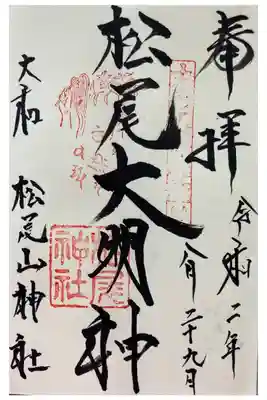 奉拝
令和二年
八月二十九日
松尾大明神
大和
松尾山神社